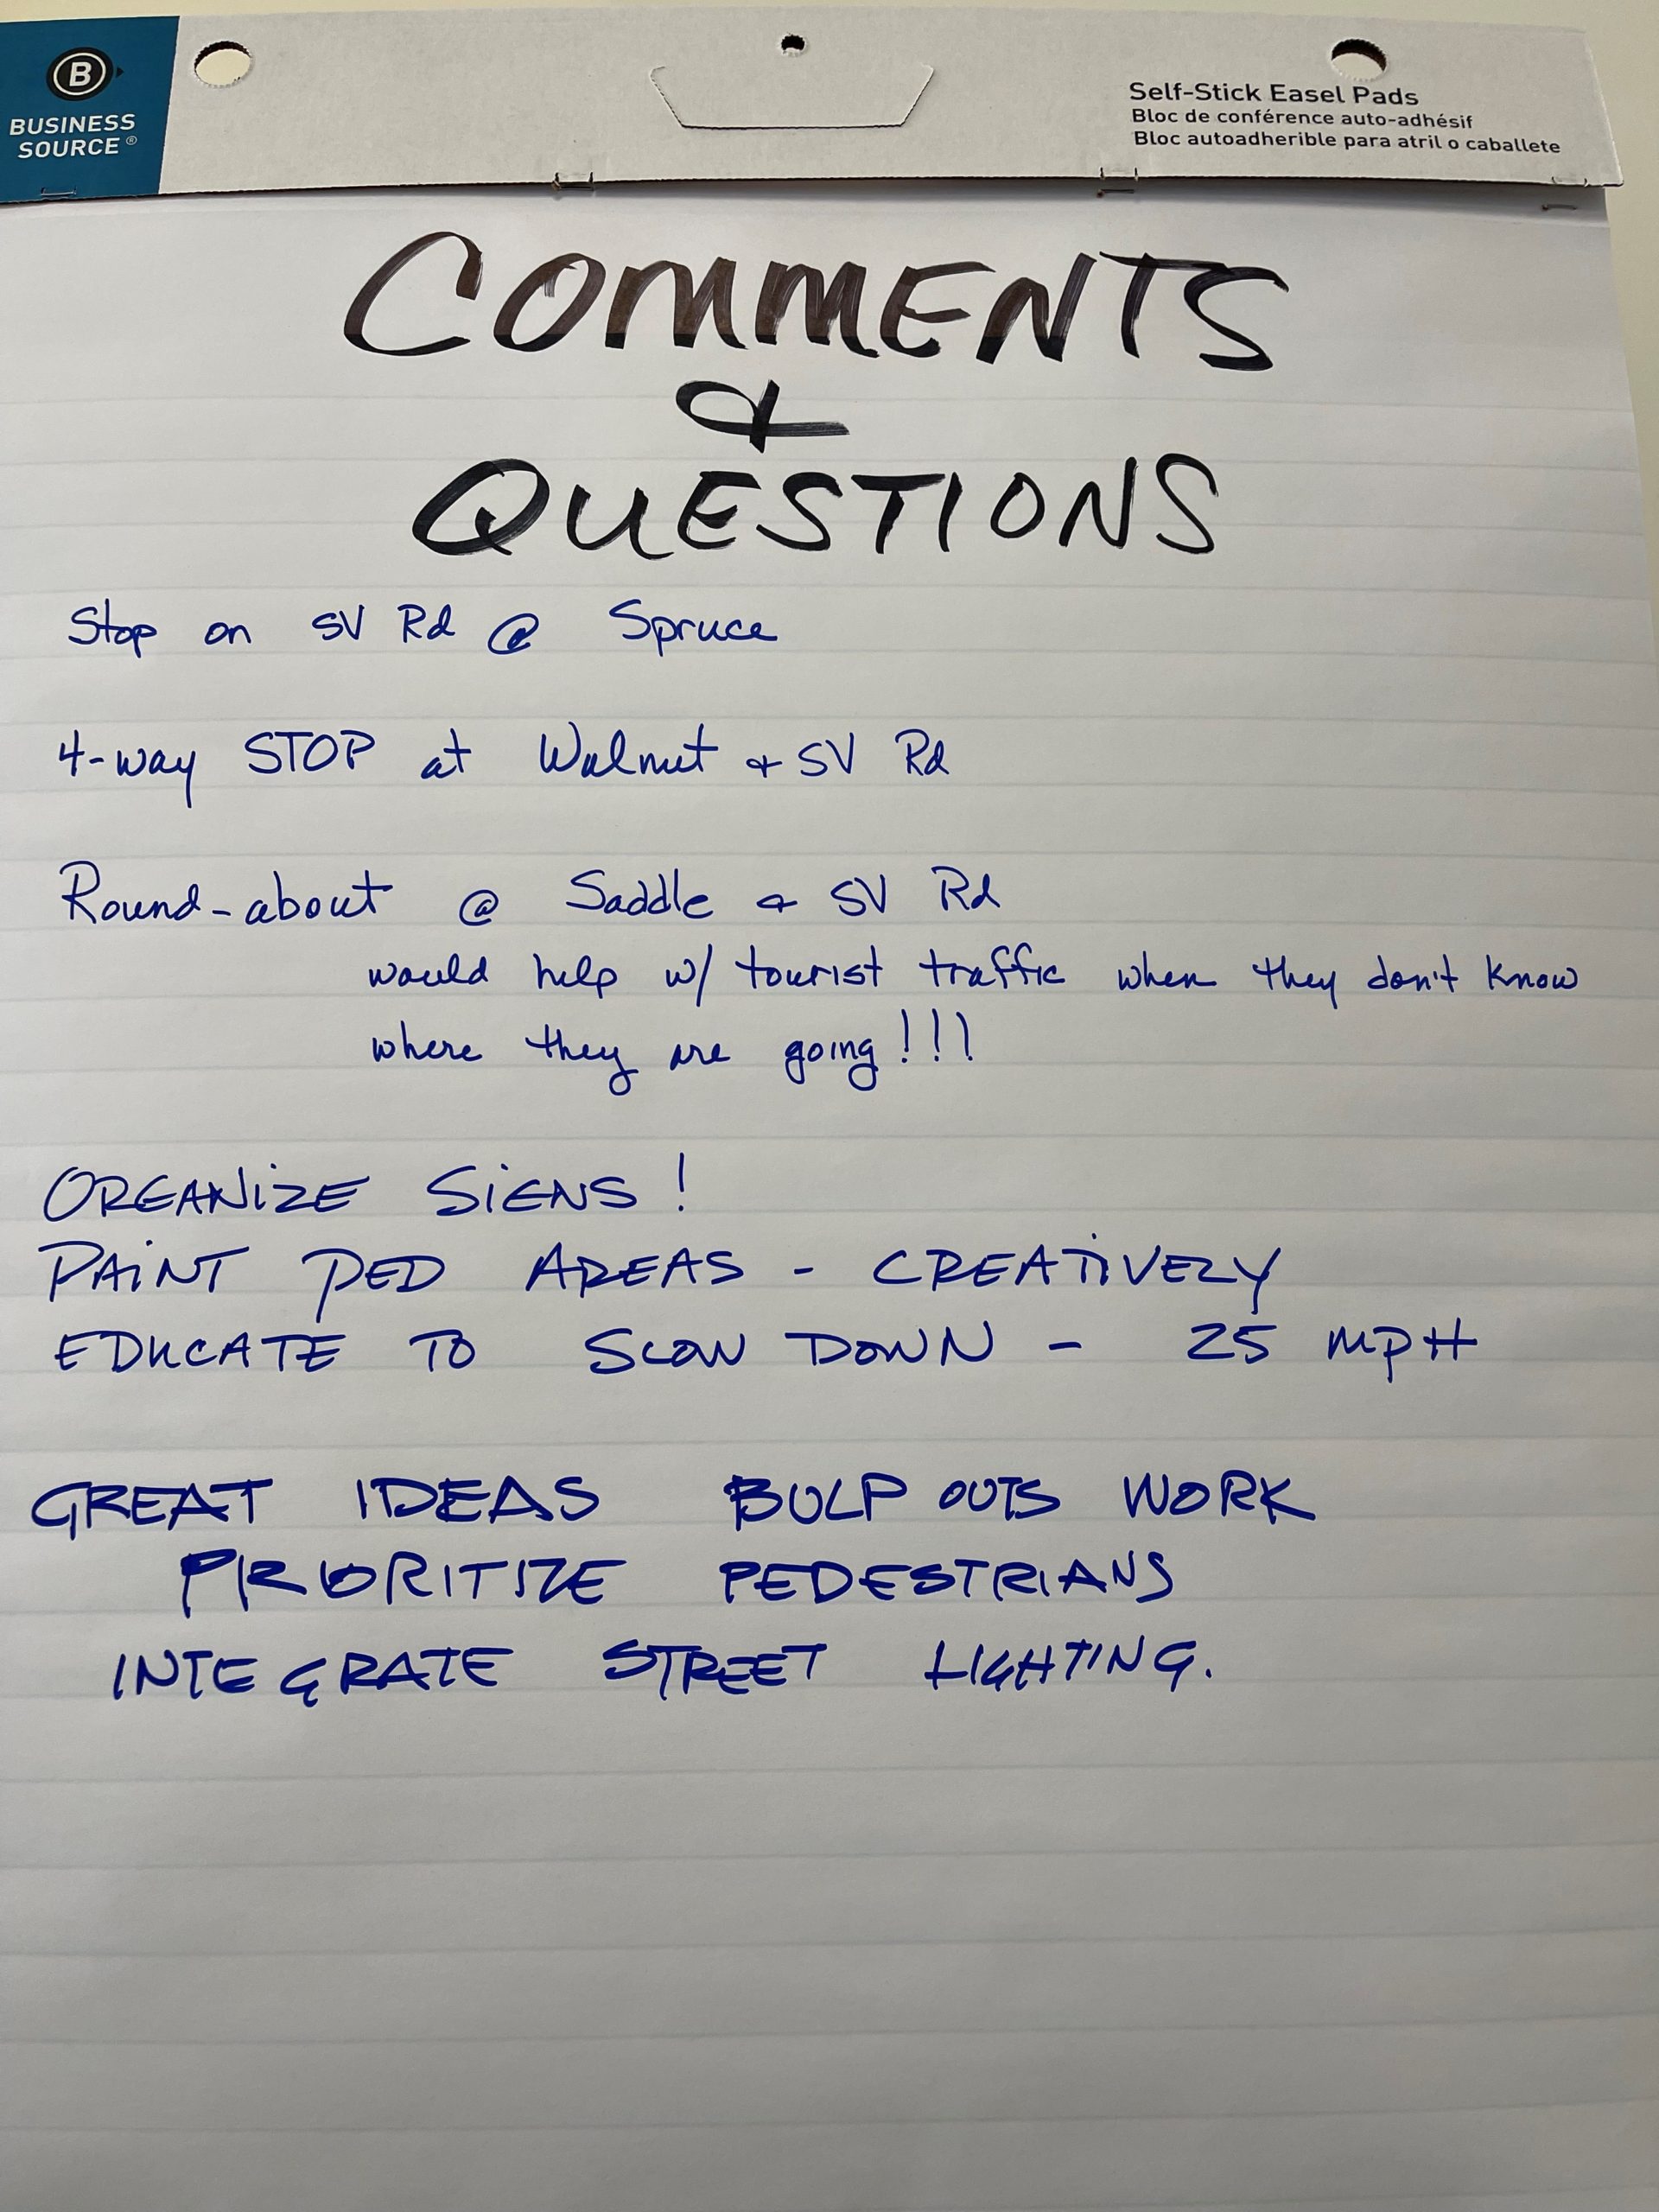 B
BUSINESS
SOURCE®
Self-Stick Easel Pads
Bloc de conférence auto-adhésif
Bloc autoadherible para atril o caballete
COMMENTS
&
QUESTIONS
Stop on SV Rd @ Spruce
4-way STOP at Walnut & SV Rd
Round-about @ Saddle & SV Rd
would help w/ tourist traffic when they don't know
where they are going!!!
ORGANIZE SIGNS!
PAINT PED AREAS - CREATIVELY
EDUCATE TO SLOW DOWN - 25 MPH
GREAT IDEAS BULP OUTS WORK
PRIORITIZE PEDESTRIANS
INTEGRATE STREET LIGHTING.